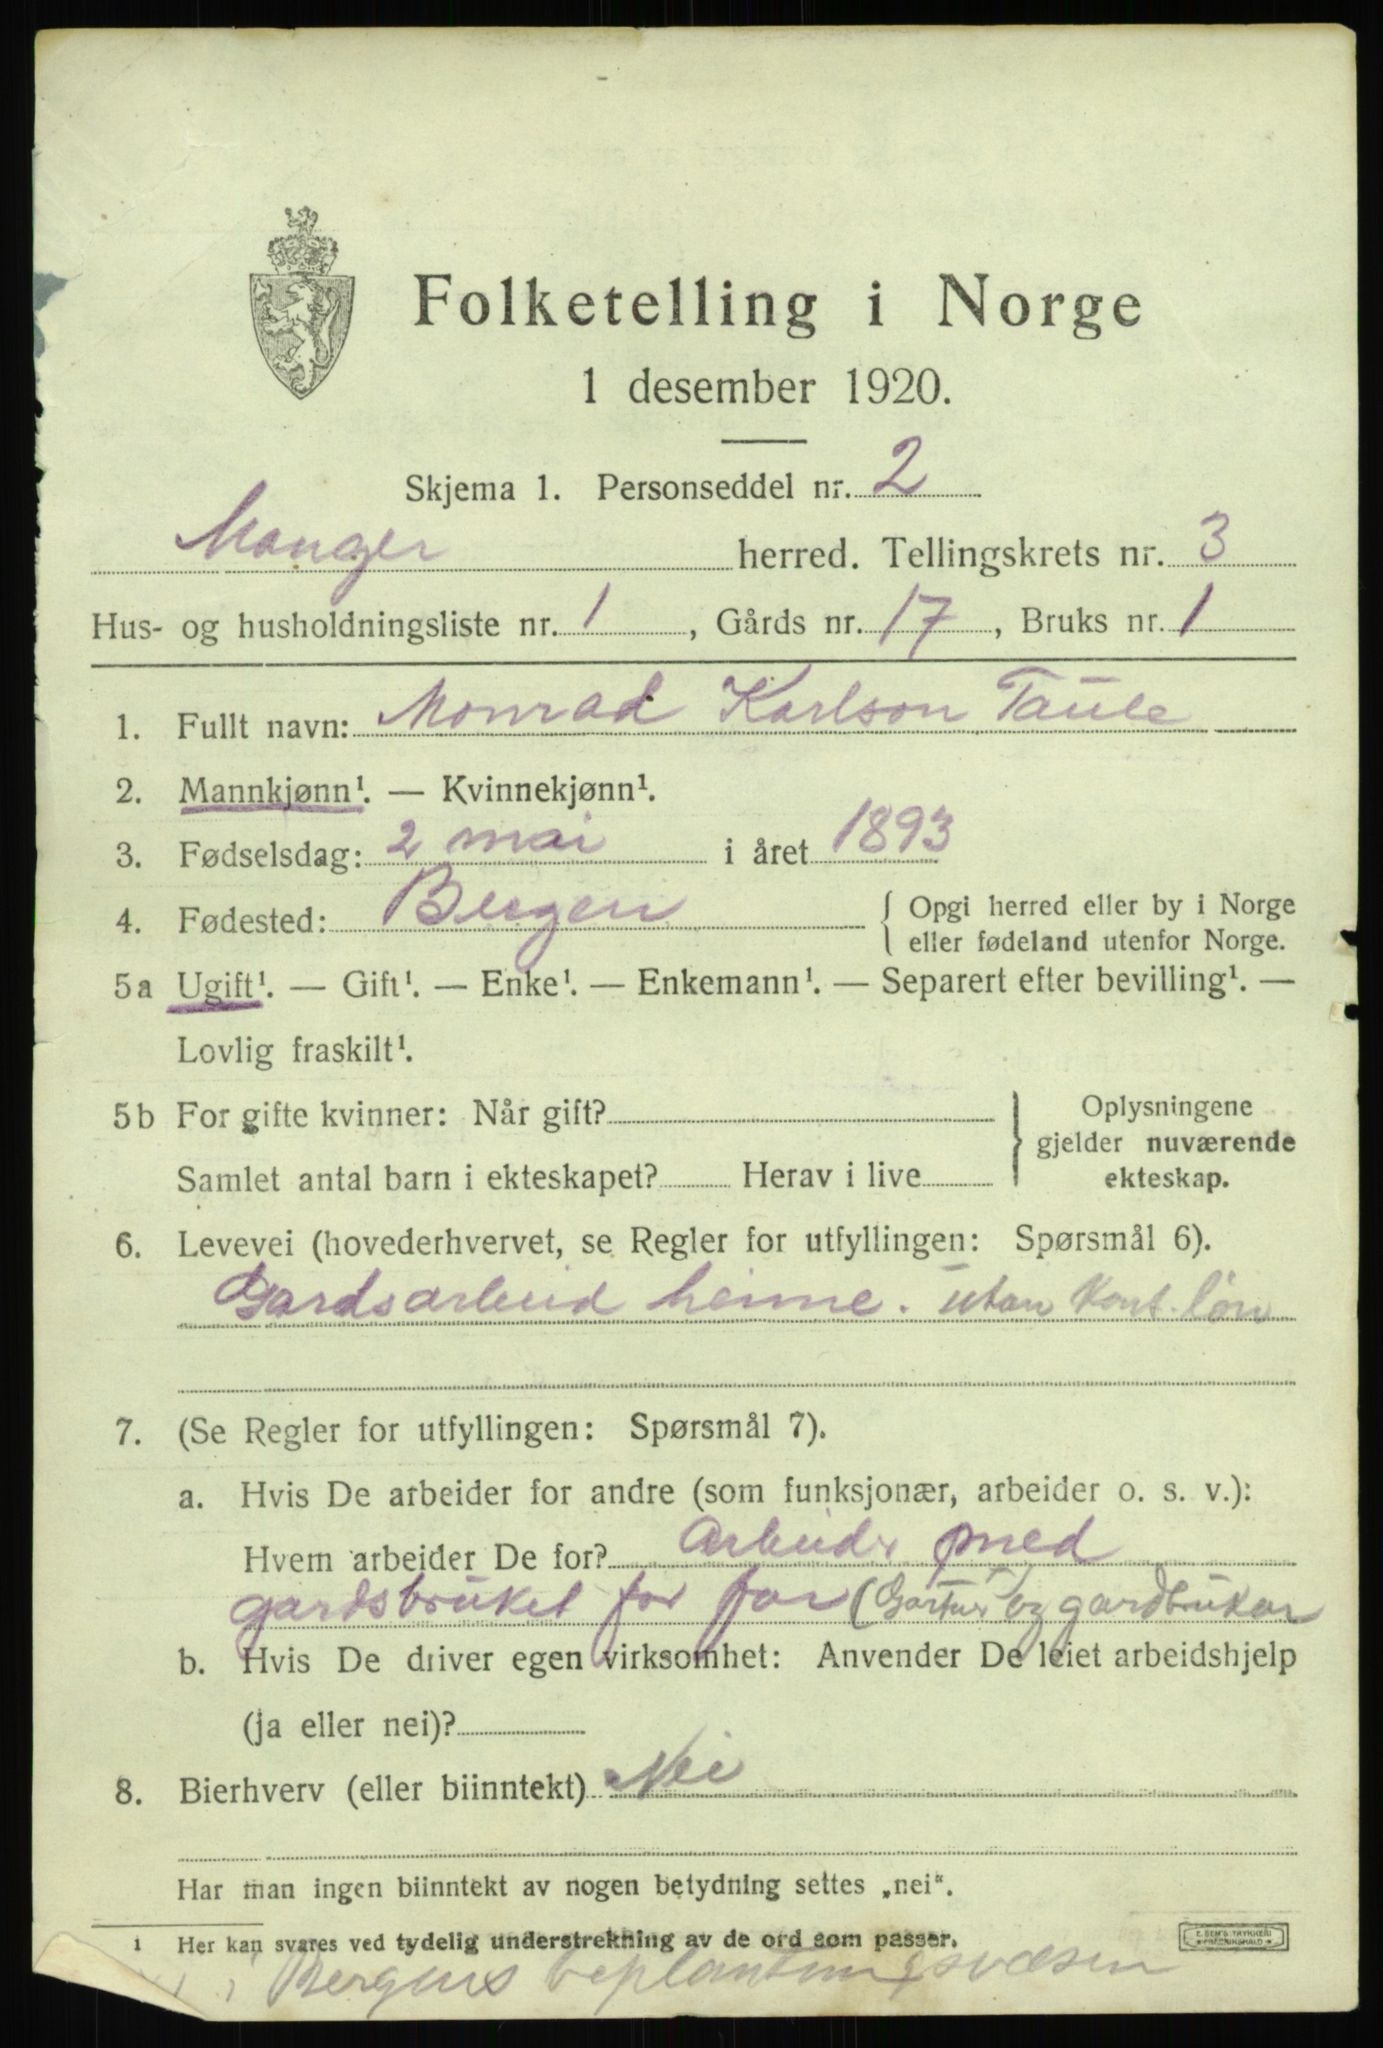 Folketelling i Norge
1 desember 1920.
Skjema 1. Personseddel nr. 2
Manger herred. Tellingskrets nr. 3
Hus- og husholdningsliste nr. 1, Gårds nr. 17, Bruks nr. 1
1. Fullt navn: Monrad Karlson Taule
2. Mannkjønn¹. — Kvinnekjønn¹.
3. Fødselsdag: 2 mai i året 1893
4. Fødested: Bergen { Opgi herred eller by i Norge
eller fødeland utenfor Norge.
5a Ugift¹. — Gift¹. — Enke¹. — Enkemann¹. — Separert efter bevilling¹. —
Lovlig fraskilt¹.
5b For gifte kvinner: Når gift? } Oplysningene
gjelder nuværende
Samlet antal barn i ekteskapet? Herav i live ekteskap.
6. Levevei (hovederhvervet, se Regler for utfyllingen: Spørsmål 6).
Gardsarbeid heime. utan kont. løn
7. (Se Regler for utfyllingen: Spørsmål 7).
a. Hvis De arbeider for andre (som funksjonær, arbeider o. s. v.):
Hvem arbeider De for? Arbeider med
gardsbruket for far (Gartner x) og gardbrukar
b. Hvis De driver egen virksomhet: Anvender De leiet arbeidshjelp
(ja eller nei)?
8. Bierhverv (eller biinntekt) Nei
Har man ingen biinntekt av nogen betydning settes „nei“.
1 Her kan svares ved tydelig understrekning av de ord som passer.
E. SEM'S TRYKKERI
FREDRIKSHALD
x) i Bergens beplantningsvæsen